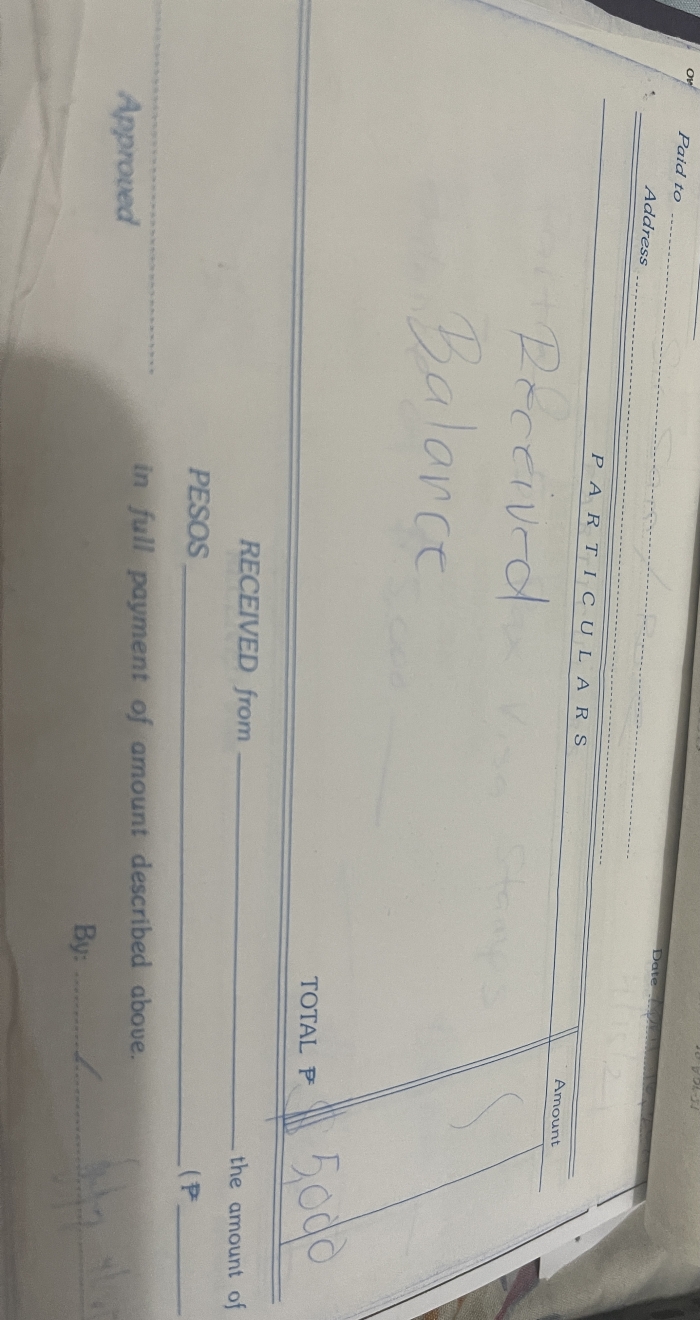 Paid to
Date
Address
PARTICULARS
Amount
Received
Balance
TOTAL ₱ 5,000
RECEIVED from the amount of
PESOS (₱
in full payment of amount described above.
Approved
By: